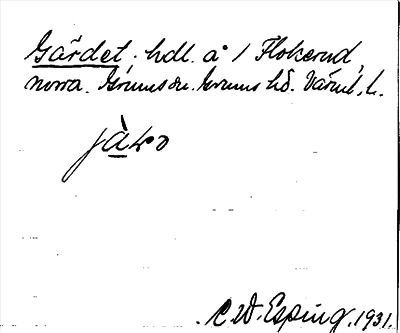 Gärdet. hdl. å 1 Flokerud,
norra. Grums sn. Grums hd. Värml. l.
C W. Esping. 1931.